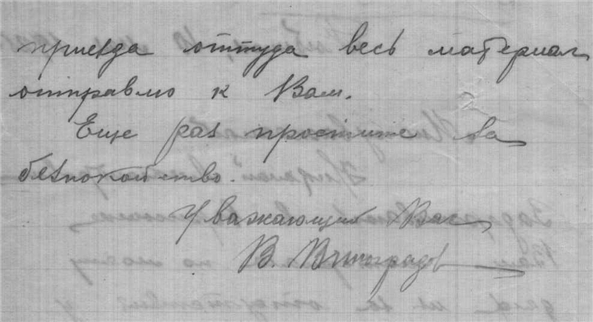 приезда оттуда весь материал
отправлю к Вам.
Еще раз простите за
безпокойство.
Уважающий Вас
В. Виноградов